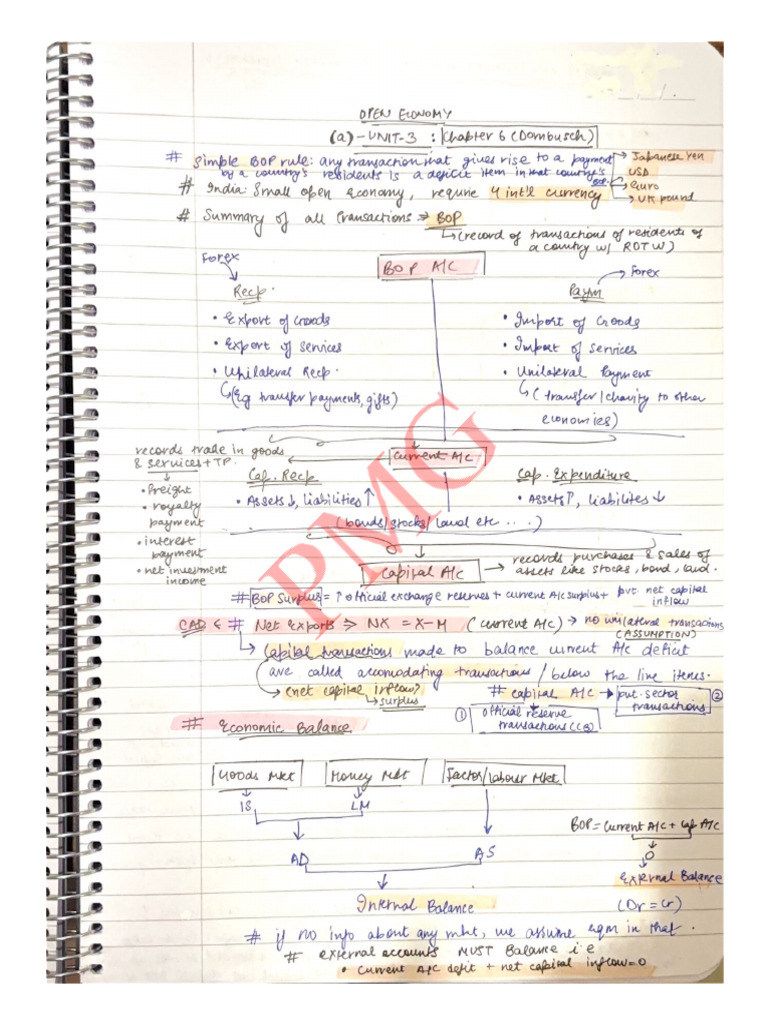 OPEN ECONOMY
(a) - UNIT-3 : Chapter 6 (Dornbusch)
# Simple BOP rule: any transaction that gives rise to a payment
by a country's residents is a deficit item in that country's BOP.
→ Japanese Yen
USD
→ Euro
→ UK pound
# India: Small open Economy, require 4 int'l currency
# Summary of all transactions ⇒ BOP
↳ (record of transactions of residents of
a country w/ ROTW)
Forex
BOP A/C
→ Forex
Recp.
Paym
• Export of Goods
• Import of Goods
• Export of services
• Import of Services
• Unilateral Recp.
• Unilateral Payment
↳ (Eg transfer payments, gifts)
↳ (transfer/charity to other
economies)
records trade in goods
& services + TP.
Current A/C
• freight
• royalty
payment
• interest
payment
• net investment
income
Cap. Recp
Cap. Expenditure
• Assets ↓, liabilities ↑
• Assets ↑, liabilites ↓
(bonds/stocks/land etc ....)
Capital A/C
→ records purchases & sales of
assets like stocks, bond, land.
# BOP Surplus = ↑ official exchange reserves + current A/C surplus + pvt net capital
inflow
CAD & # Net Exports ⇒ NX = X-M (current A/C) → no unilateral transactions
(ASSUMPTION)
↳ Capital transactions made to balance current A/C deficit
are called accomodating transactions / below the line items.
(net capital inflow)
↳ surplus
# capital A/C → pvt. sector
transactions ②
① official reserve
transactions (CB)
# Economic Balance.
Goods Mkt
Money Mkt
Factor/labour Mkt
IS
LM
BOP = current A/C + Cap A/C
AD
AS
0
External Balance
Internal Balance
(Dr = Cr)
# if no info about any mkt, we assume eqm in that.
# external accounts MUST Balance i.e
• Current A/C defit + net capital inflow = 0
PMG